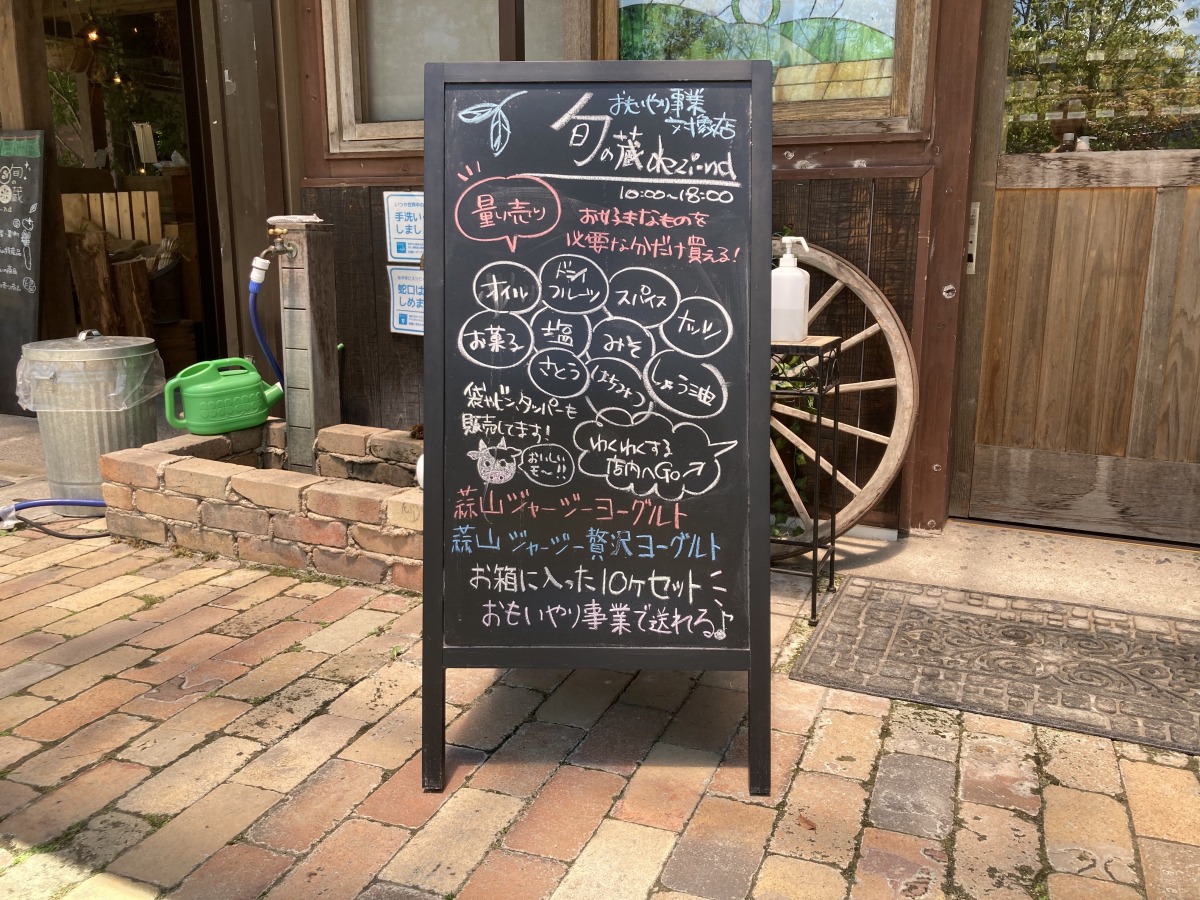 おもいやり事業
対象店
旬の蔵 dezi-nd
10:00〜18:00
量り売り
お好きなものを
必要なだけ買える!
オイル
ドライ
フルーツ
スパイス
ナッツ
お菓子
塩
みそ
さとう
はちみつ
しょう油
袋やビン、タッパーも
販売してます!
おいしい
モ〜!!
わくわくする
店内へGo→
蒜山ジャージーヨーグルト
蒜山ジャージー贅沢ヨーグルト
お箱に入った10ヶセット
おもいやり事業で送れる♪
手洗い
しまし
蛇口は
しめま
旬
蔵